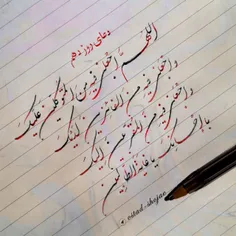 دعای روز دهم
اللهم اجعلنی فیه من المتوکلین علیک
واجعلنی فیه من الفائزین لدیک
واجعلنی فیه من المقربین الیک
باحسانک یا غایة الطالبین
ostad-shojae